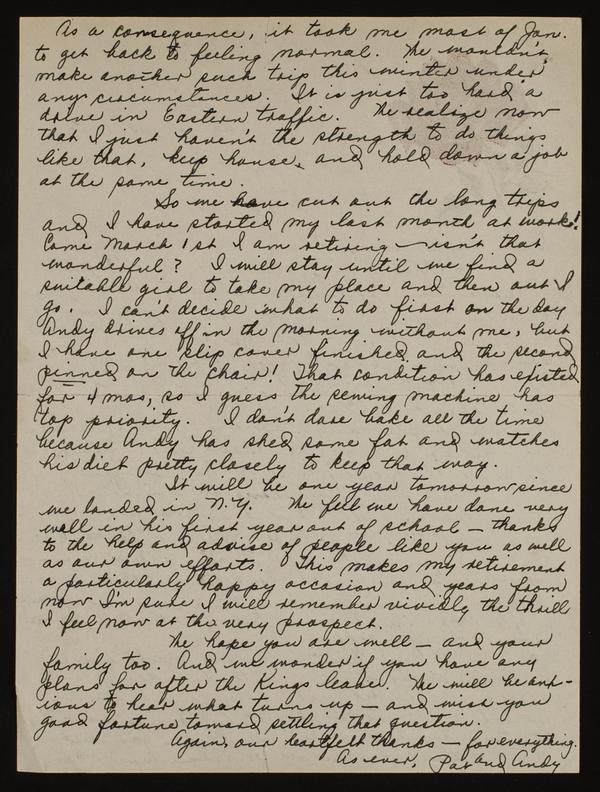 As a consequence, it took me most of Jan.
to get back to feeling normal. We wouldn't
make another such trip this winter under
any circumstances. It is just too hard a
drive in Eastern traffic. We realize now
that I just haven't the strength to do things
like that, keep house, and hold down a job
at the same time.
So we have cut out the long trips
and I have started my last month at work!
Come March 1st I am retiring — isn't that
wonderful? I will stay until we find a
suitable girl to take my place and then out I
go. I can't decide what to do first on the day
Andy drives off in the morning without me, but
I have one slip cover finished and the second
pinned on the chair! That condition has existed
for 4 mos, so I guess the sewing machine has
top priority. I don't dare bake all the time
because Andy has shed some fat and watches
his diet pretty closely to keep that way.
It will be one year tomorrow since
we landed in N.Y. We feel we have done very
well in his first year out of school — thanks
to the help and advise of people like you as well
as our own efforts. This makes my retirement
a particularly happy occasion and years from
now I'm sure I will remember vividly the thrill
I feel now at the very prospect.
We hope you are well — and your
family too. And we wonder if you have any
plans for after the Kings leave. We will be anx-
ious to hear what turns up — and wish you
good fortune toward settling that question.
Again, our heartfelt thanks — for everything.
As ever, Pat and Andy